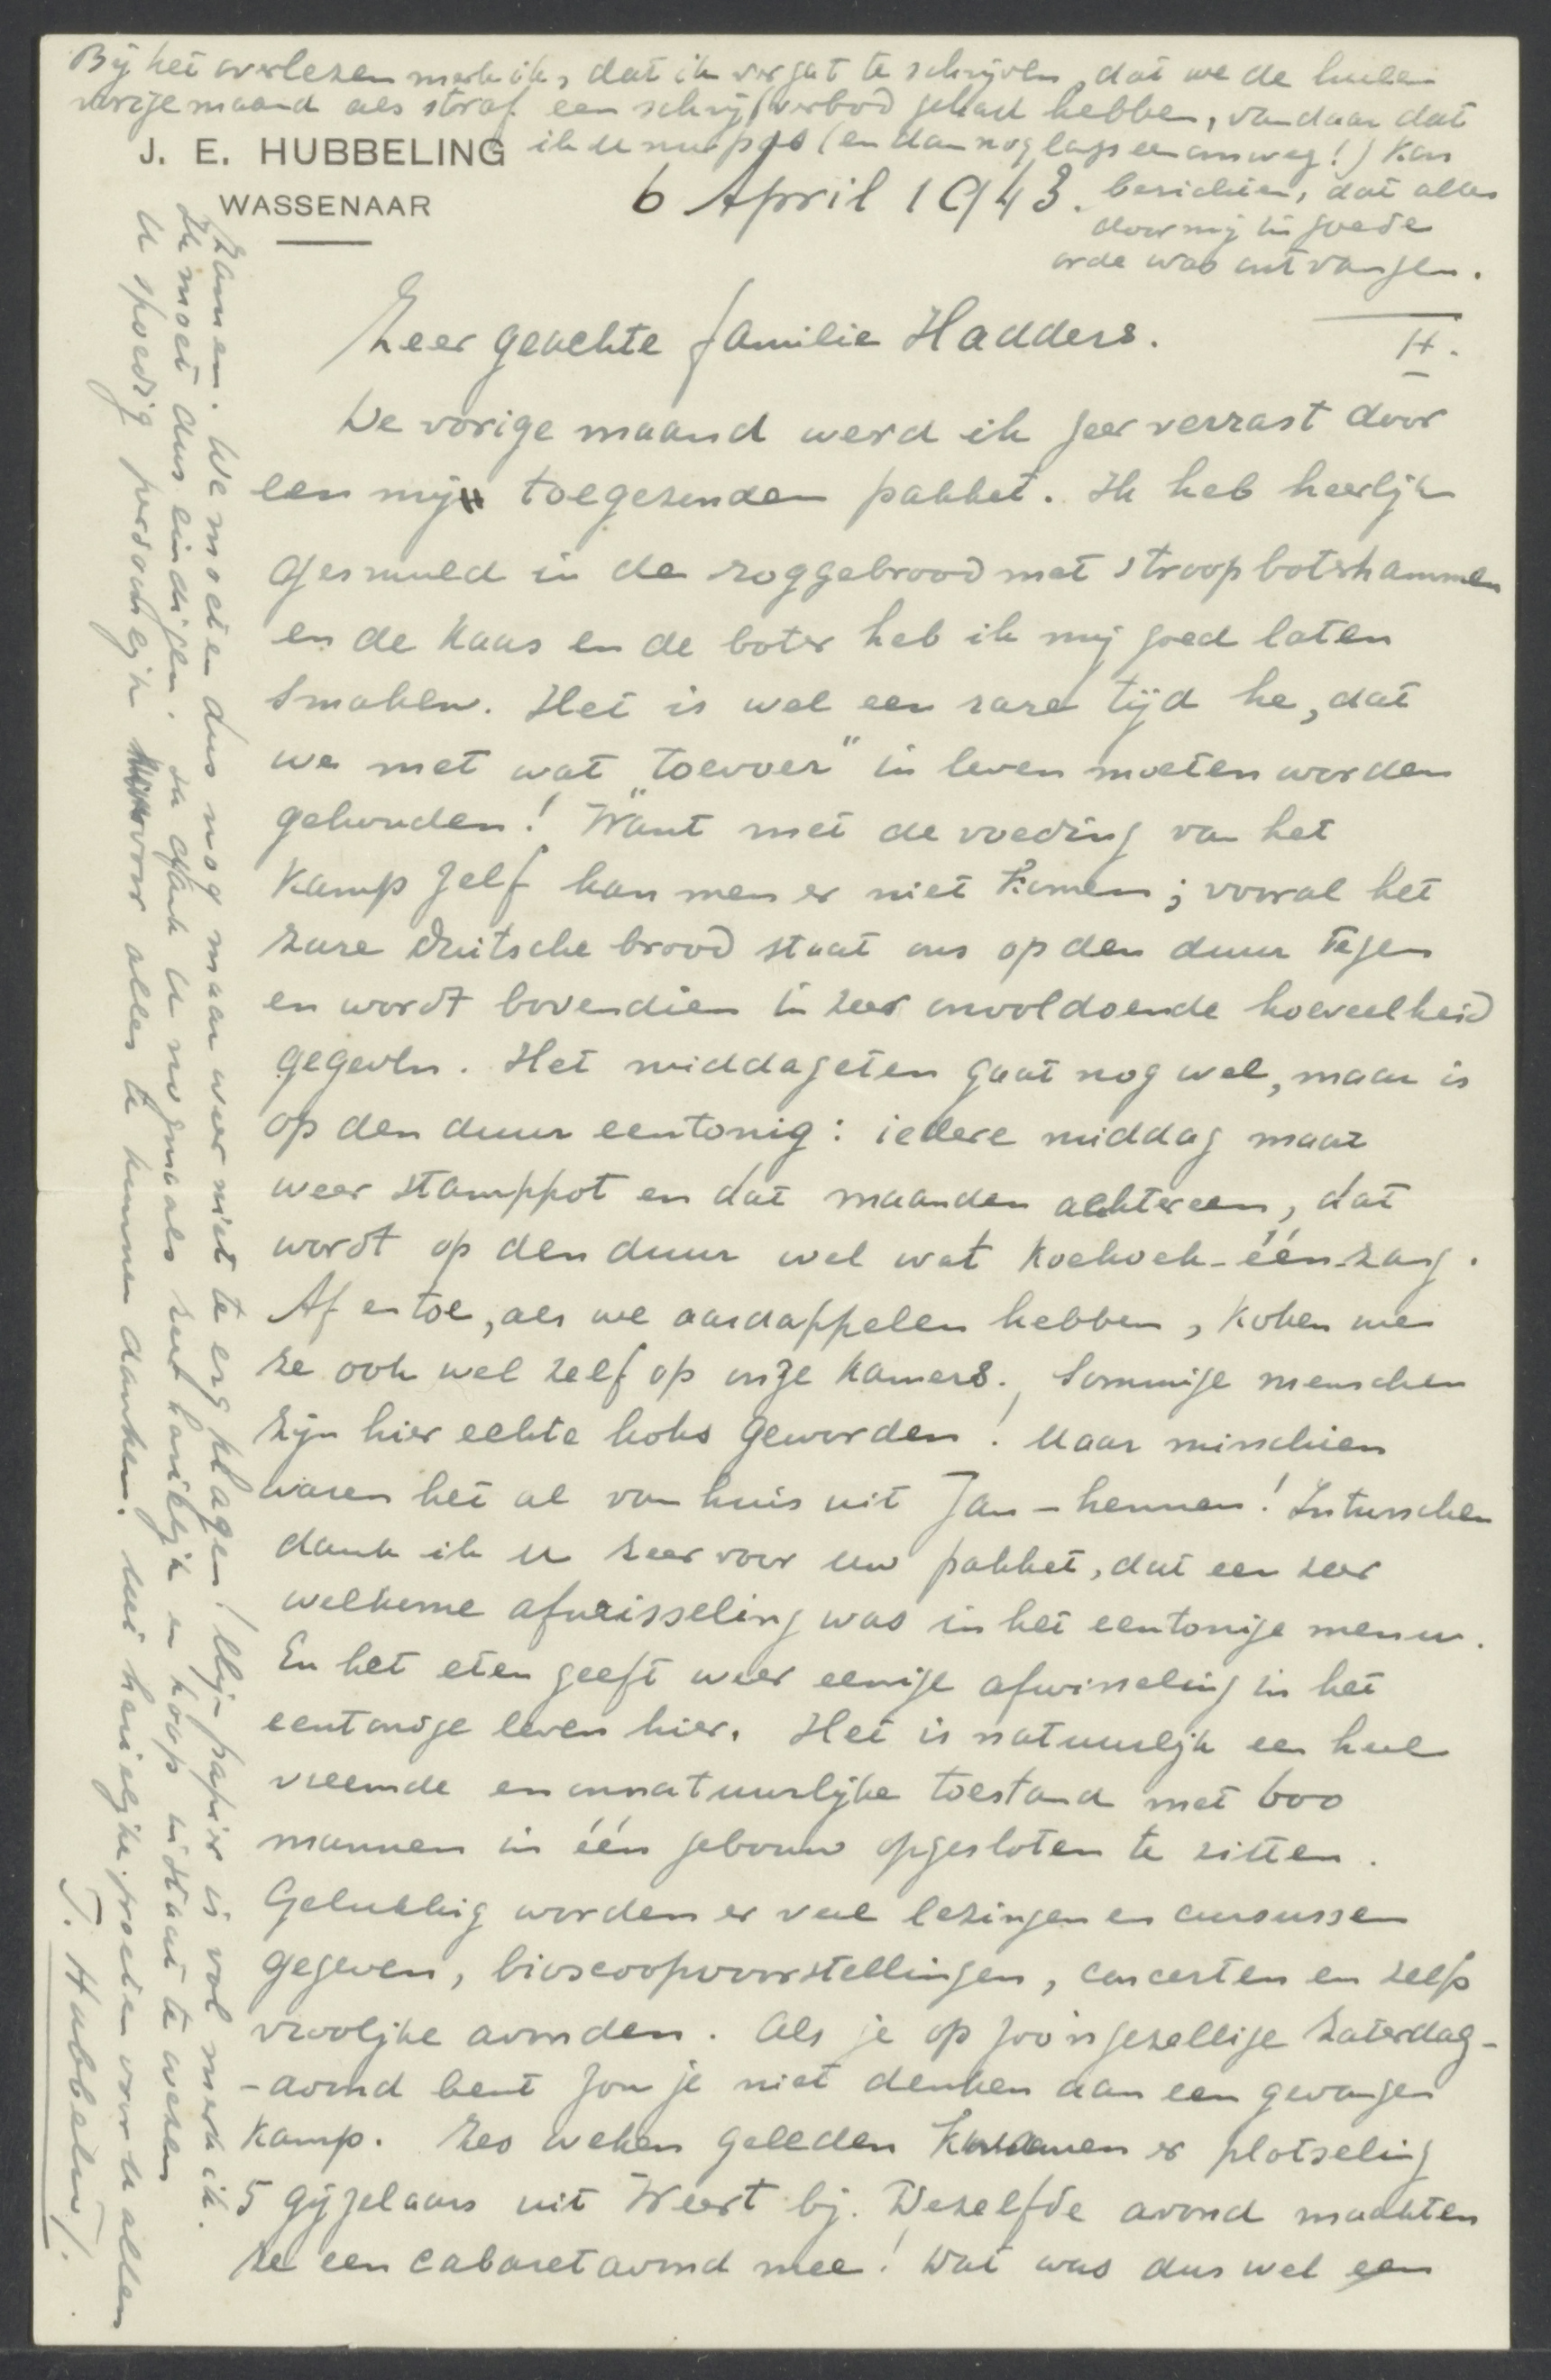 Bij het overlezen merk ik, dat ik vergat te schrijven, dat we de heele
vorige maand als straf een schrijfverbod gehad hebben, vandaar dat
ik u nu pas (en dan nog langs een omweg!) kan
berichten, dat alles
door mij in goede
orde was ontvangen.
J. E. HUBBELING
WASSENAAR
6 April 1943.
H.
Zeer geachte familie Hadders.
De vorige maand werd ik zeer verrast door
een mij toegezonden pakket. Ik heb heerlijk
gesmuld in de roggebrood met stroop boterhammen
en de kaas en de boter heb ik mij goed laten
smaken. Het is wel een rare tijd he, dat
we met wat "toevoer" in leven moeten worden
gehouden! Want met de voeding van het
kamp zelf kan men er niet komen; vooral het
zure Duitsche brood staat ons op den duur tegen
en wordt bovendien in zeer onvoldoende hoeveelheid
gegeven. Het middageten gaat nog wel, maar is
op den duur eentonig: iedere middag maar
weer stamppot en dat maanden achtereen, dat
wordt op den duur wel wat koekoek-één-zang.
Af en toe, als we aardappelen hebben, koken we
ze ook wel zelf op onze kamers. Sommige menschen
zijn hier echte koks geworden! Maar misschien
waren het al van huis uit Jan-hennen! Intusschen
dank ik u zeer voor uw pakket, dat een zeer
welkome afwisseling was in het eentonige menu.
En het eten geeft weer eenige afwisseling in het
eentonige leven hier. Het is natuurlijk een heel
vreemde en onnatuurlijke toestand met 600
mannen in één gebouw opgesloten te zitten.
Gelukkig worden er veel lezingen en cursussen
gegeven, bioscoopvoorstellingen, concerten en zelfs
vroolijke avonden. Als je op zoo'n gezellige Zaterdag-
-avond bent zou je niet denken aan een gevangen
kamp. Zes weken geleden kwamen er plotseling
5 gijzelaars uit Weert bij. Dezelfde avond maakten
ze een cabaretavond mee! Dat was dus wel een
. We moeten dus nog maar weer niet te erg klagen! Mijn papier is vol merk ik.
Ik moet dus eindigen. Ik dank u nogmaals zeer hartelijk en hoop in staat te wezen
u spoedig persoonlijk voor alles te kunnen danken. Met hartelijke groeten voor u allen
J. Hubbeling.